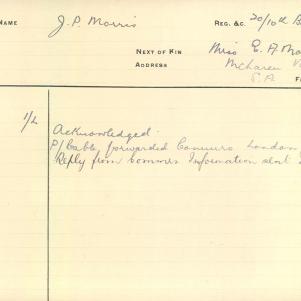 NAME J. P. Morris REG. &C. 20/10th B
NEXT OF KIN Miss E. A. Mo
ADDRESS McLaren V
S.A.
1/L Acknowledged.
P/Cable forwarded Commrs London
Reply from Commrs Information sent